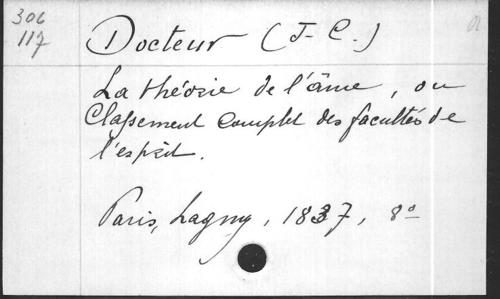 306
117
Docteur (J-C.)
La théorie de l'âme, ou
Classement complet des facultés de
l'esprit.
Paris, Lagny, 1837, 8°